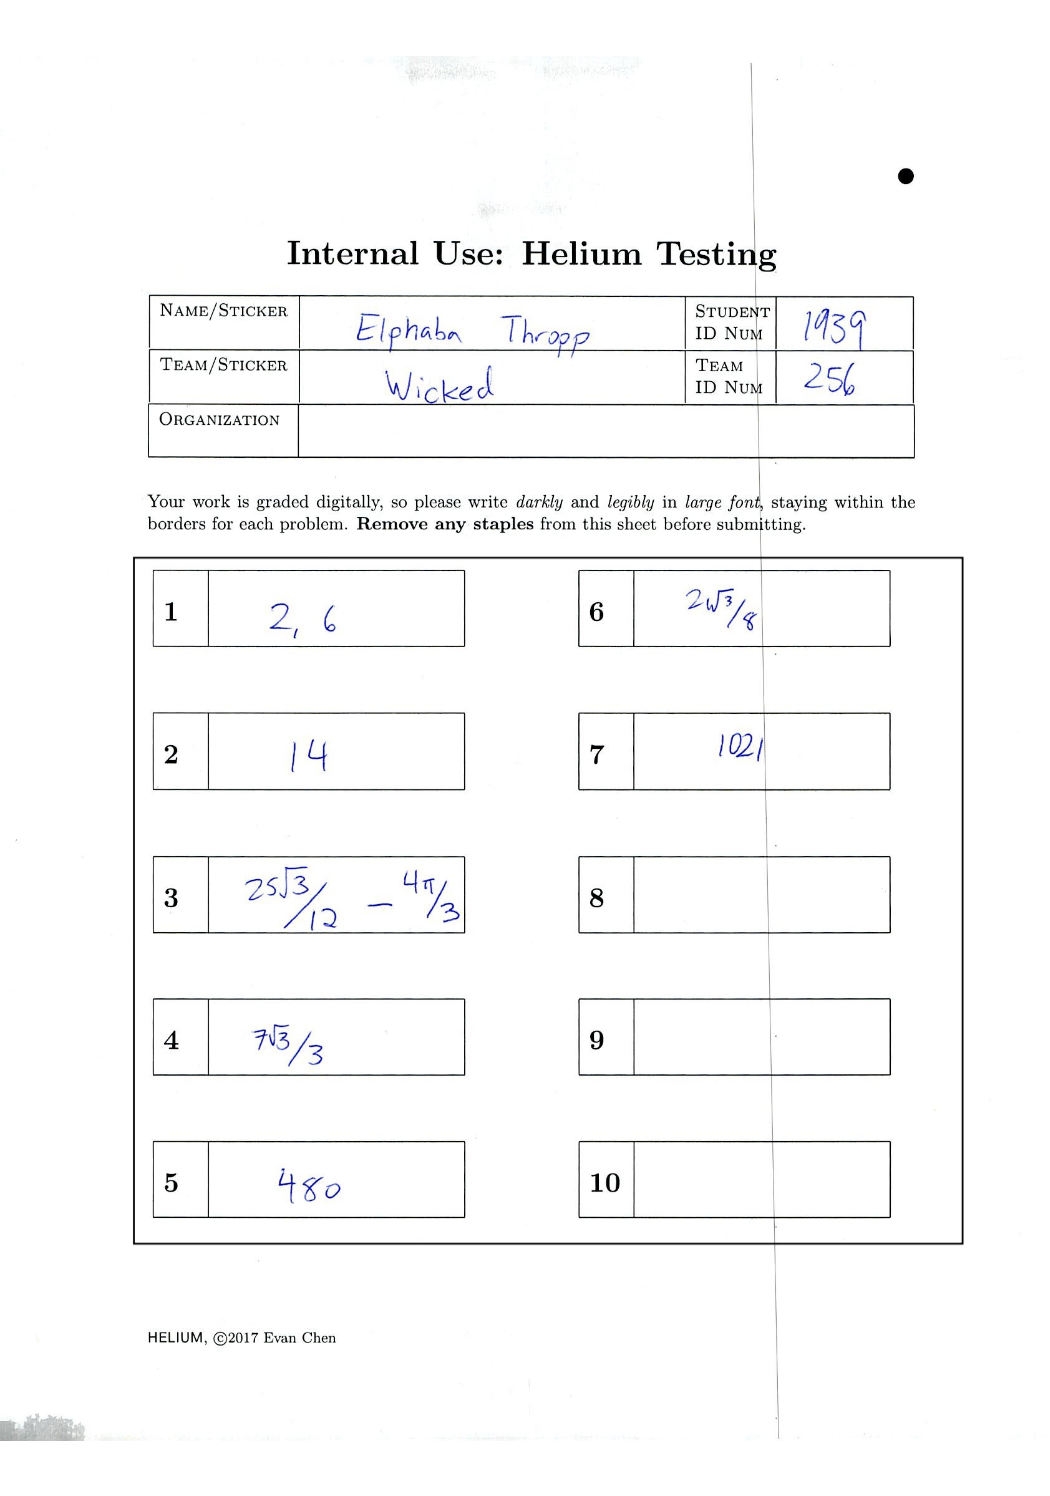 Internal Use: Helium Testing
NAME/STICKER Elphaba Thropp STUDENT ID NUM 1939
TEAM/STICKER Wicked TEAM ID NUM 256
ORGANIZATION
Your work is graded digitally, so please write darkly and legibly in large font, staying within the
borders for each problem. Remove any staples from this sheet before submitting.
1 2, 6
6 2√3/8
2 14
7 1021
3 25√3/12 − 4π/3
8
4 7√3/3
9
5 480
10
HELIUM, ©2017 Evan Chen